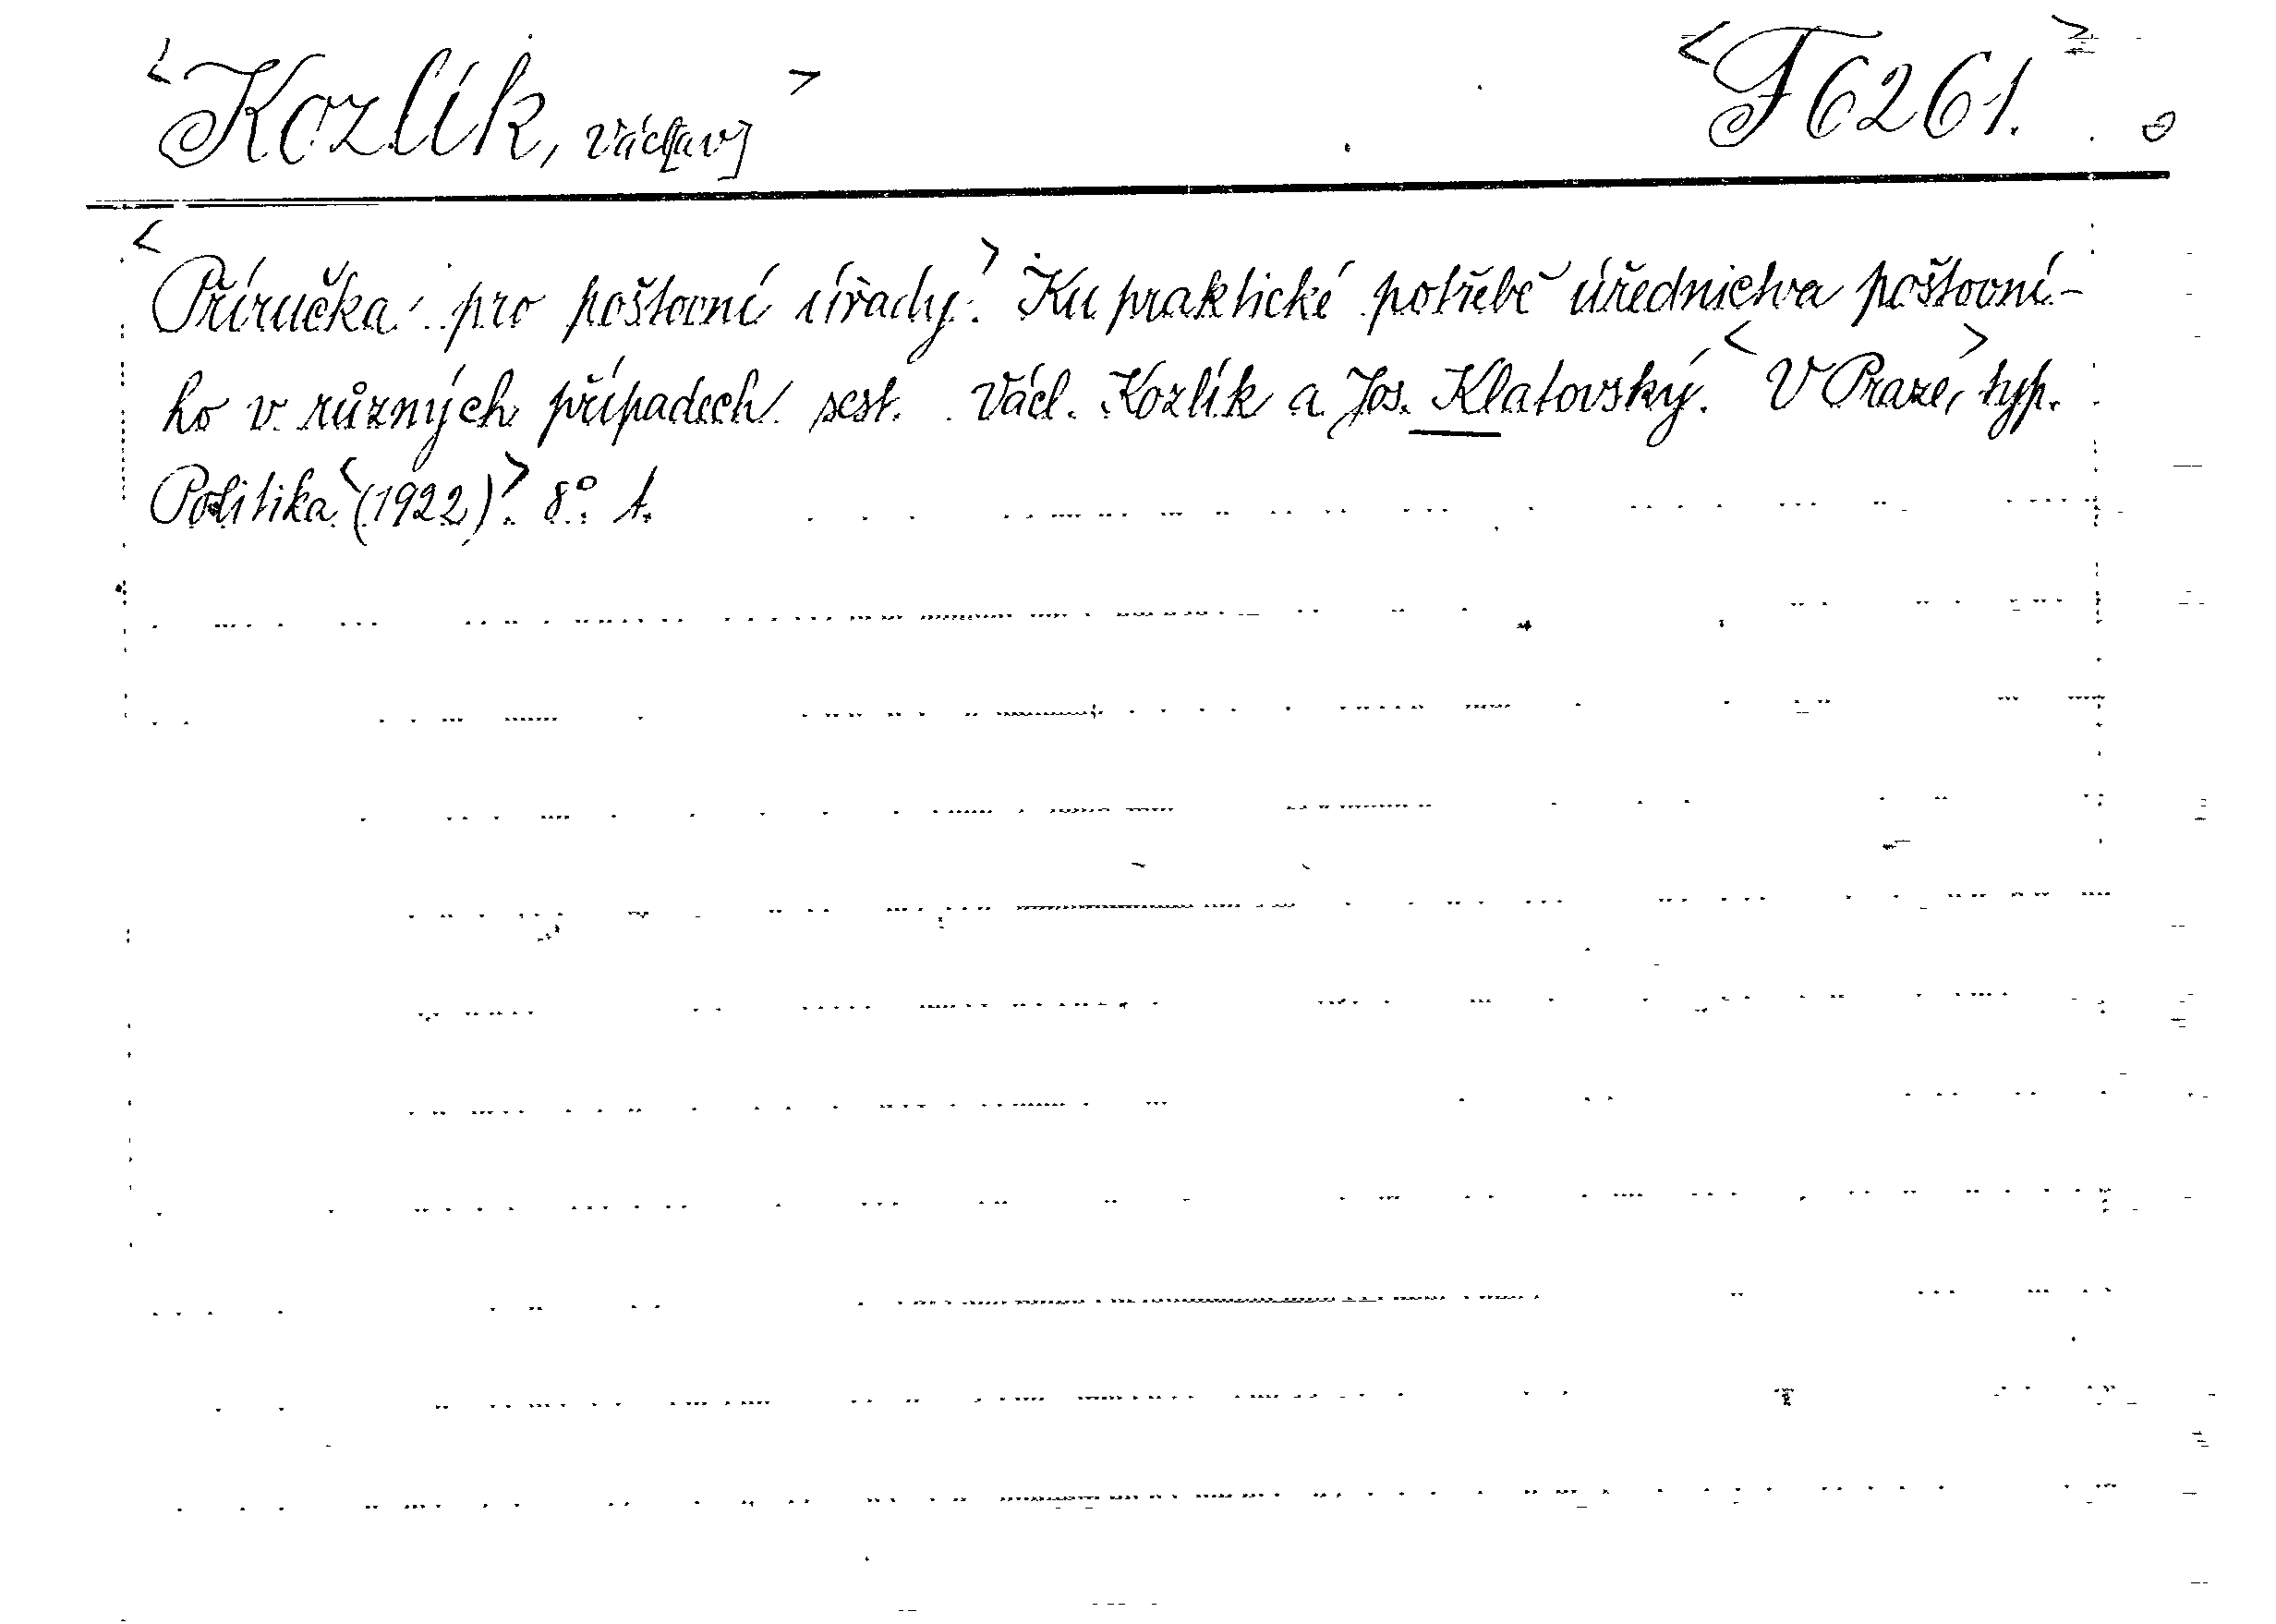 <Kozlík, Václ[av]> <F 6261.>
<Příručka pro poštovní úřady.> Ku praktické potřebě úřednictva poštovní-
ho v různých případech sest. Václ. Kozlík a Jos. Klatovský. <V Praze,> typ.
Politika <(1922)>. 8°.